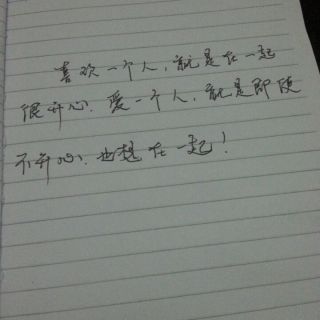 喜欢一个人，就是在一起
很开心．爱一个人，就是即使
不开心．也想在一起！